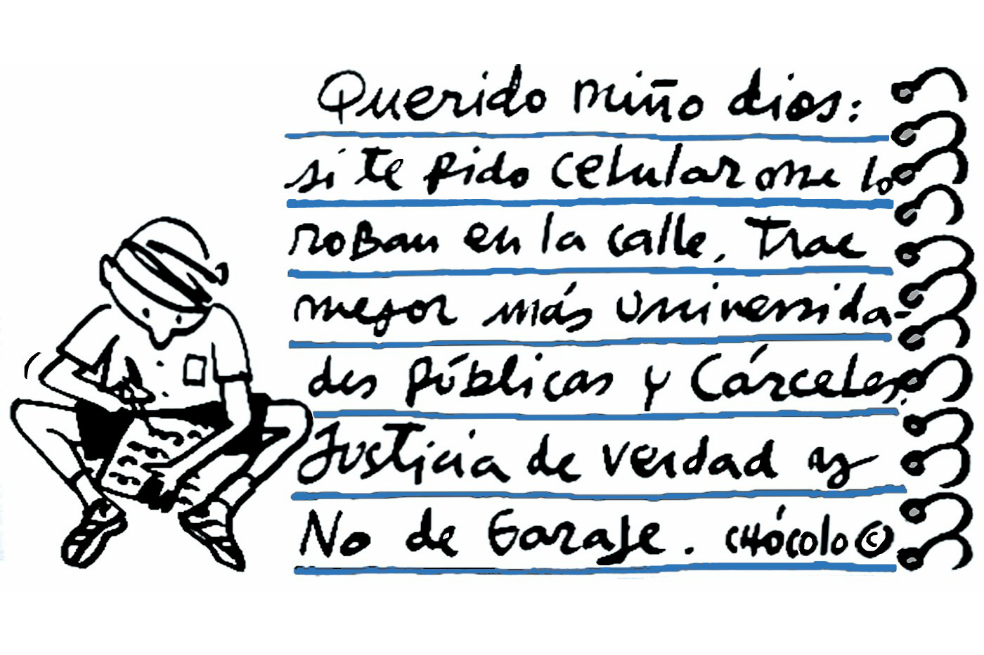 Querido niño dios:
si te pido celular me lo
roban en la calle, Trae
mejor más universida-
des públicas y Cárceles,
Justicia de verdad y
No de Garaje. CHócolo ©